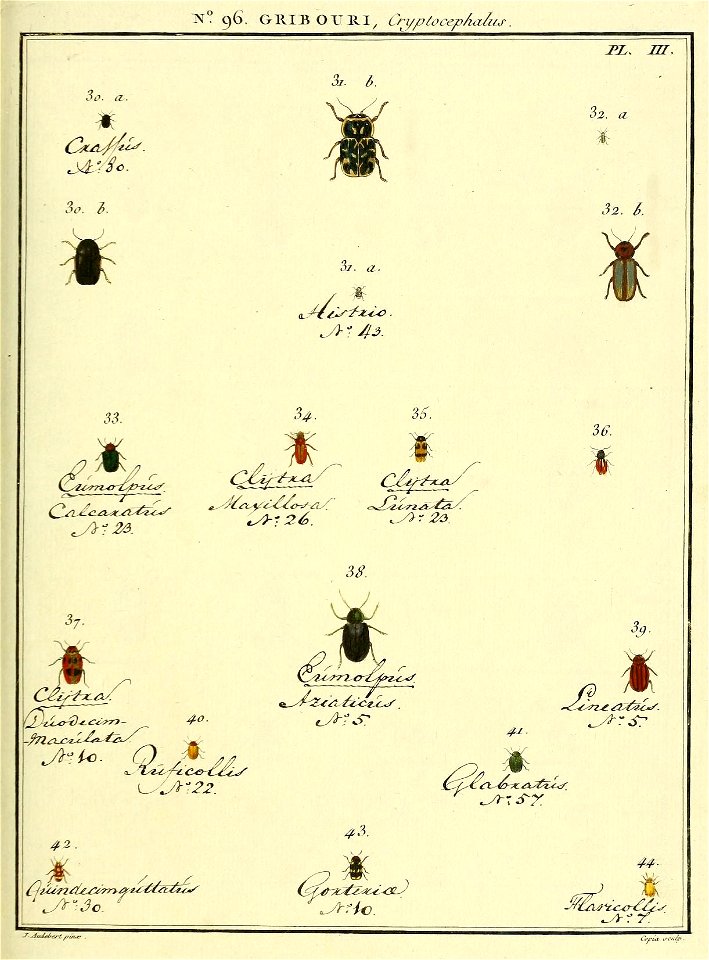 Nº. 96. GRIBOURI, Cryptocephalus.
PL. III.
30. a.
Crassus.
Nº. 30.
31. b.
32. a
30. b.
32. b.
31. a.
Histrio.
Nº. 43.
33.
Eumolpus
Calcaratus
Nº. 23.
34.
Clytra
Maxillosa.
Nº. 26.
35.
Clytra
Lunata.
Nº. 23.
36.
37.
Clytra.
Duodecim-
maculata
Nº. 10.
38.
Eumolpus
Aziaticus.
Nº. 5.
39.
Lineatus.
Nº. 5.
40.
Ruficollis
Nº. 22.
41.
Glabratus.
Nº. 57.
42.
Quindecimguttatus
Nº. 30.
43.
Gorteriæ
Nº. 10.
44.
Flavicollis.
Nº. 7.
J. Audebert pinx.
Copia sculp.